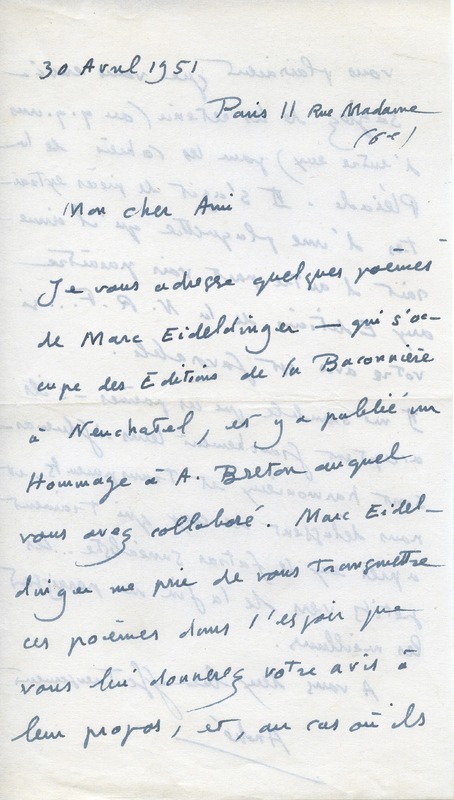 30 Avril 1951
Paris 11 Rue Madame
(6e)
Mon cher Ami
Je vous adresse quelques poèmes
de Marc Eideldinger — qui s'oc-
cupe des Editions de la Baconnière
à Neuchatel, et y a publié un
Hommage à A. Breton auquel
vous avez collaboré. Marc Eidel-
dinger me prie de vous transmettre
ces poèmes dans l'espoir que
vous lui donnerez votre avis à
leur propos, et, au cas où ils